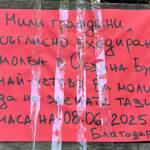 Мили граждани,
съгласно входиран
молба в Община Бур
Най-учтиво Ви моли
да не заемате тази
маса на 08.06.2025
Благодар